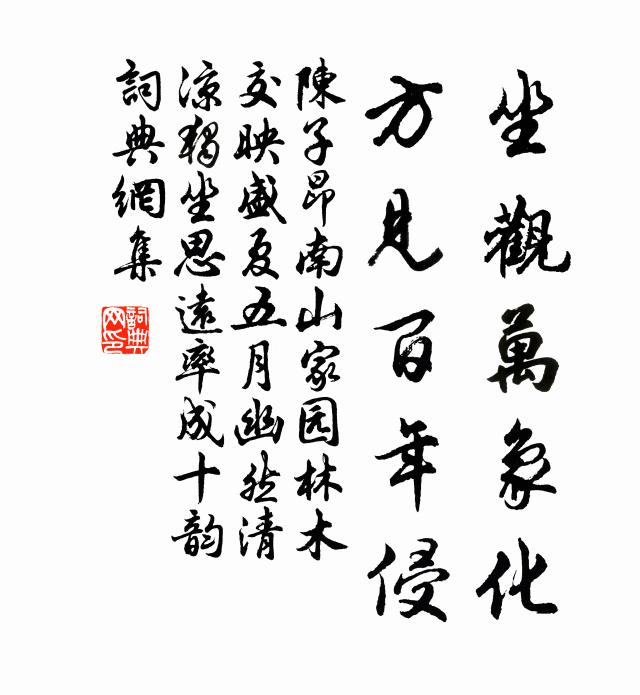 坐觀萬象化
方見百年侵
陳子昂南山家园林木
交映盛夏五月幽然清
涼獨坐思遠率成十韵
詞典網集
詞典
网印